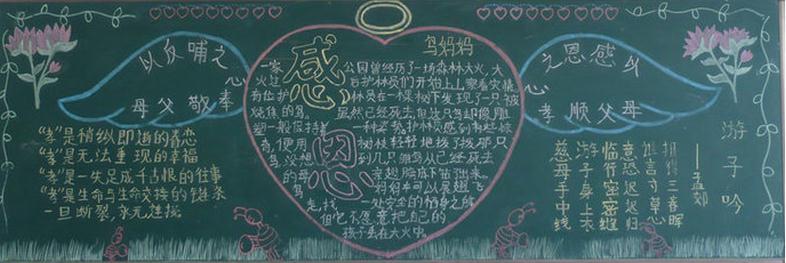 以反哺之
心
奉敬父母
"孝"是稍纵即逝的眷恋
"孝"是无法重现的幸福
"孝"是一失足成千古恨的往事
"孝"是生命与生命交接的链条
一旦断裂,永无连接
感
恩
鸟妈妈
公园曾经历了一场森林大火,大
火过后护林员们开始上山察看灾情
有位护林员在一棵树下发现了一只被
烧焦的鸟。虽然已经死去但这只鸟却像雕
塑一般保持着一种姿势,护林员感到有些惊
奇,便用树枝轻轻地拨了拨那只
鸟,没想到几只雏鸟从已经死去
的母鸟翅膀底下钻出来。
妈妈本可以展翅飞
走找一处安全的栖身之所
但它不愿意把自己的
孩子丢在大火中。
以感恩之
心
孝顺父母
游子吟
——孟郊
慈母手中线
游子身上衣
临行密密缝
意恐迟迟归
谁言寸草心
报得三春晖